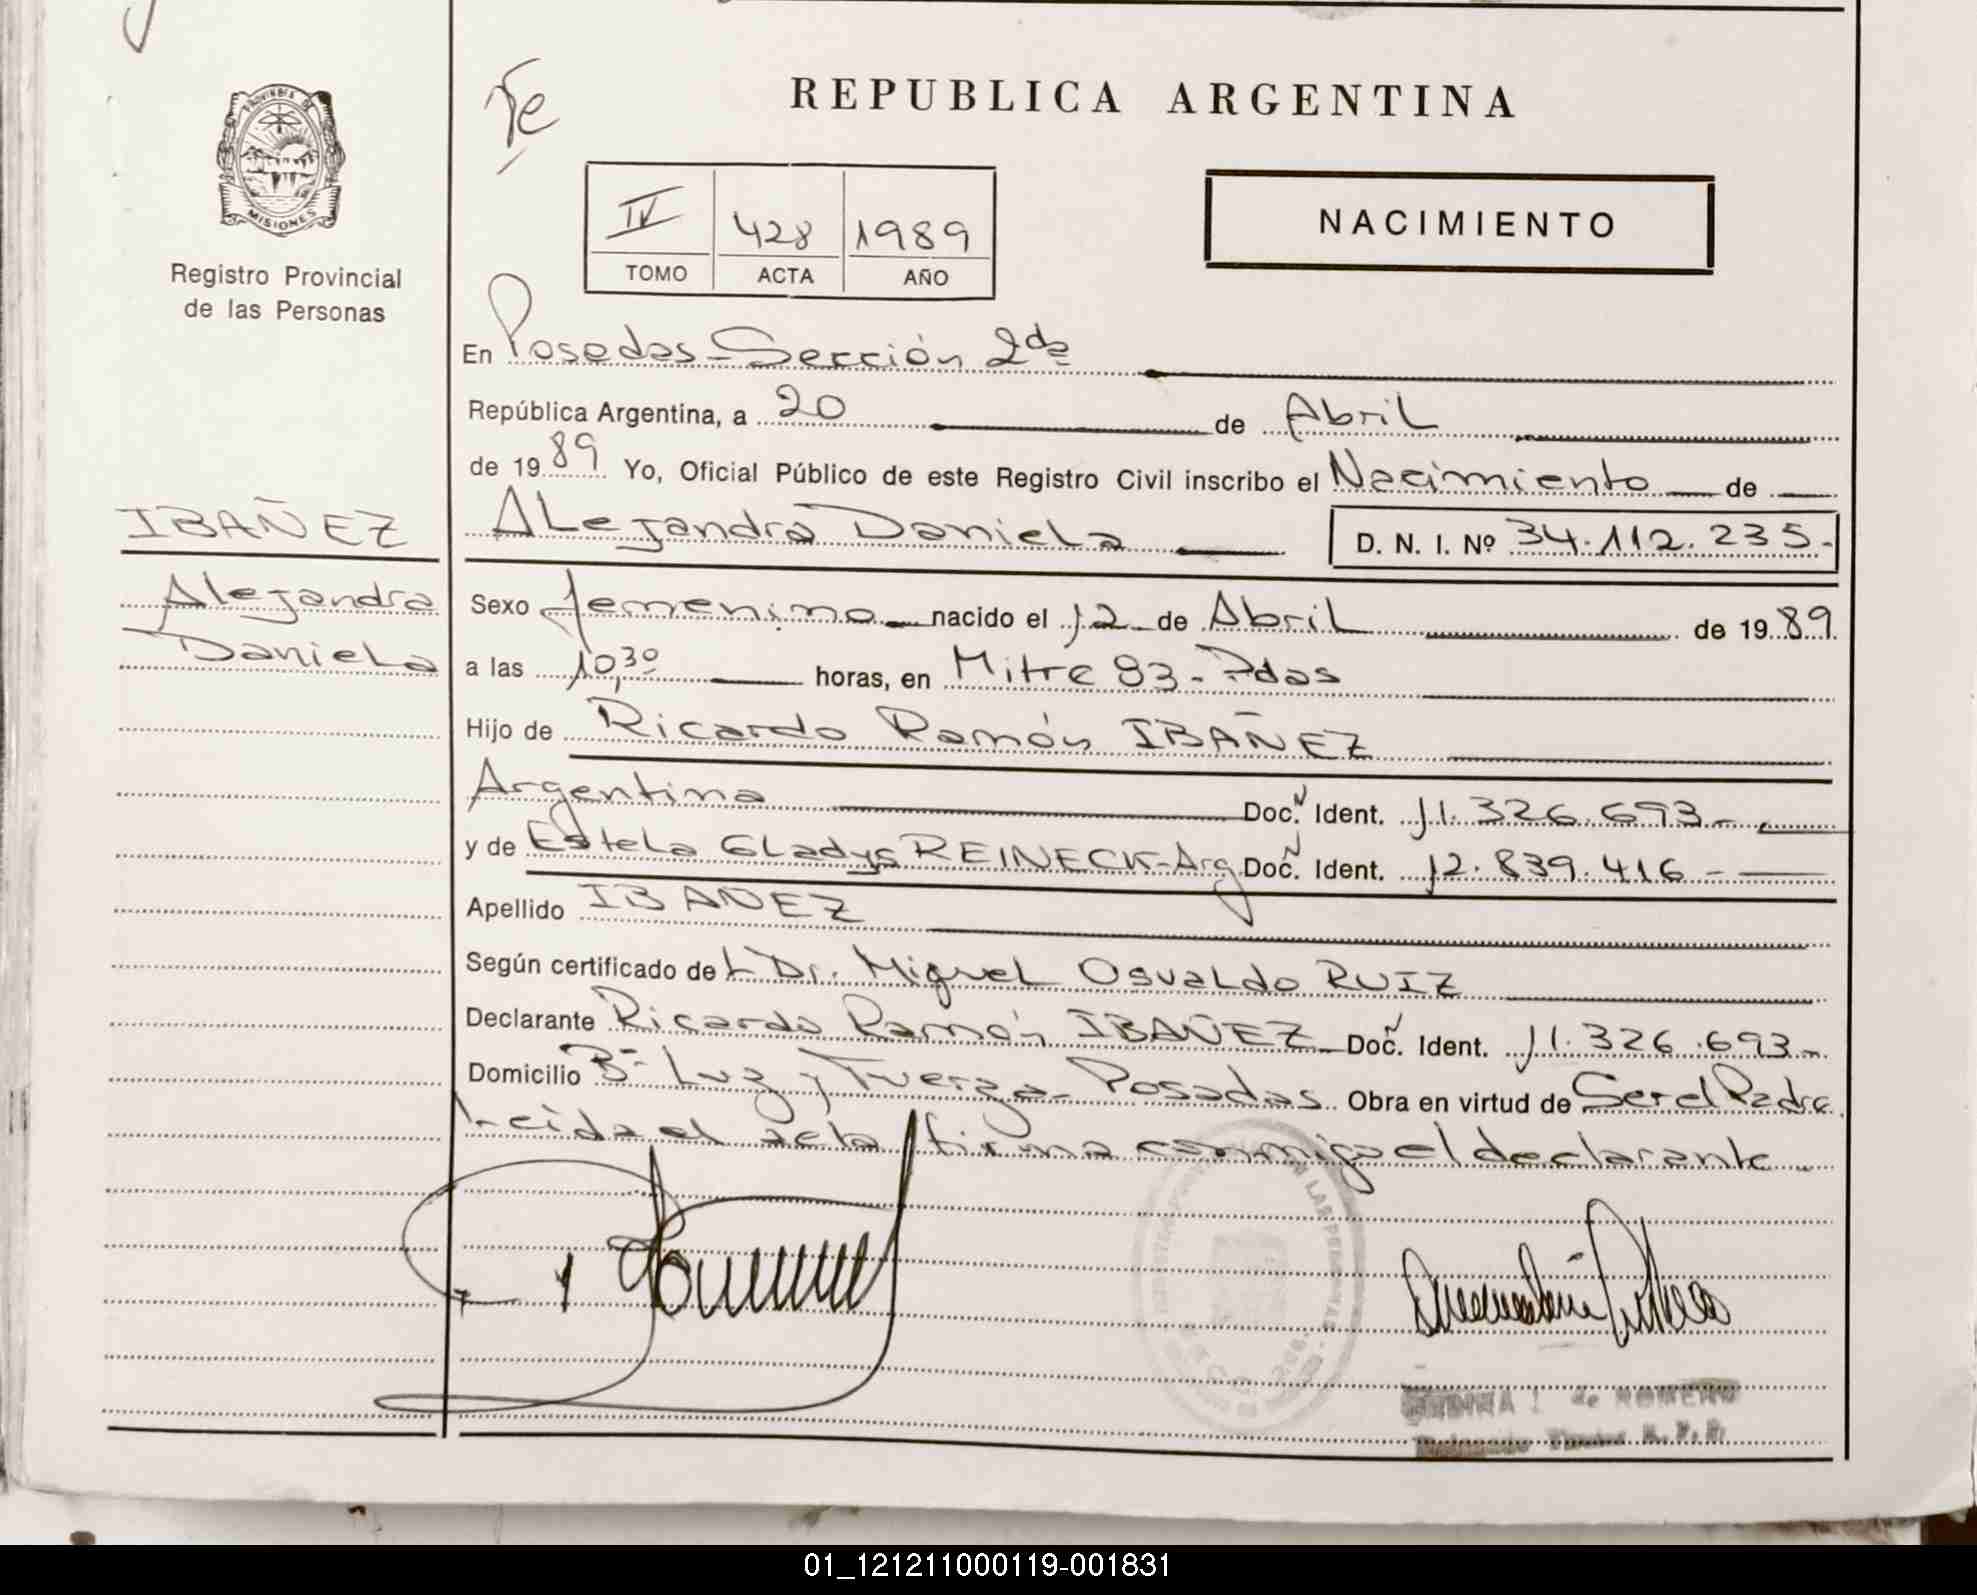 Fe
REPUBLICA ARGENTINA
PROVINCIA DE
MISIONES
Registro Provincial
de las Personas
IV 428 1989
TOMO ACTA AÑO
NACIMIENTO
En Posadas - Sección 2da
República Argentina, a 20 de Abril
de 1989 Yo, Oficial Público de este Registro Civil inscribo el Nacimiento de
IBAÑEZ
Alejandra Daniela D. N. I. Nº 34.112.235.-
Alejandra
Daniela
Sexo femenino nacido el 12 de Abril de 1989
a las 10,30 horas, en Mitre 93 - Pdas
Hijo de Ricardo Ramón IBAÑEZ
Argentina Doc. N Ident. 11.326.693-
y de Estela Gladys REINECK-Arg Doc. N Ident. 12.839.416-
Apellido IBAÑEZ
Según certificado del Dr. Miguel Osvaldo RUIZ
Declarante Ricardo Ramón IBAÑEZ Doc. N Ident. 11.326.693-
Domicilio Bº Luz y Fuerza - Posadas Obra en virtud de Ser el Padre
Leida el acta firma conmigo el declarante
LAS PERSONAS
de ROMERO
01_121211000119-001831